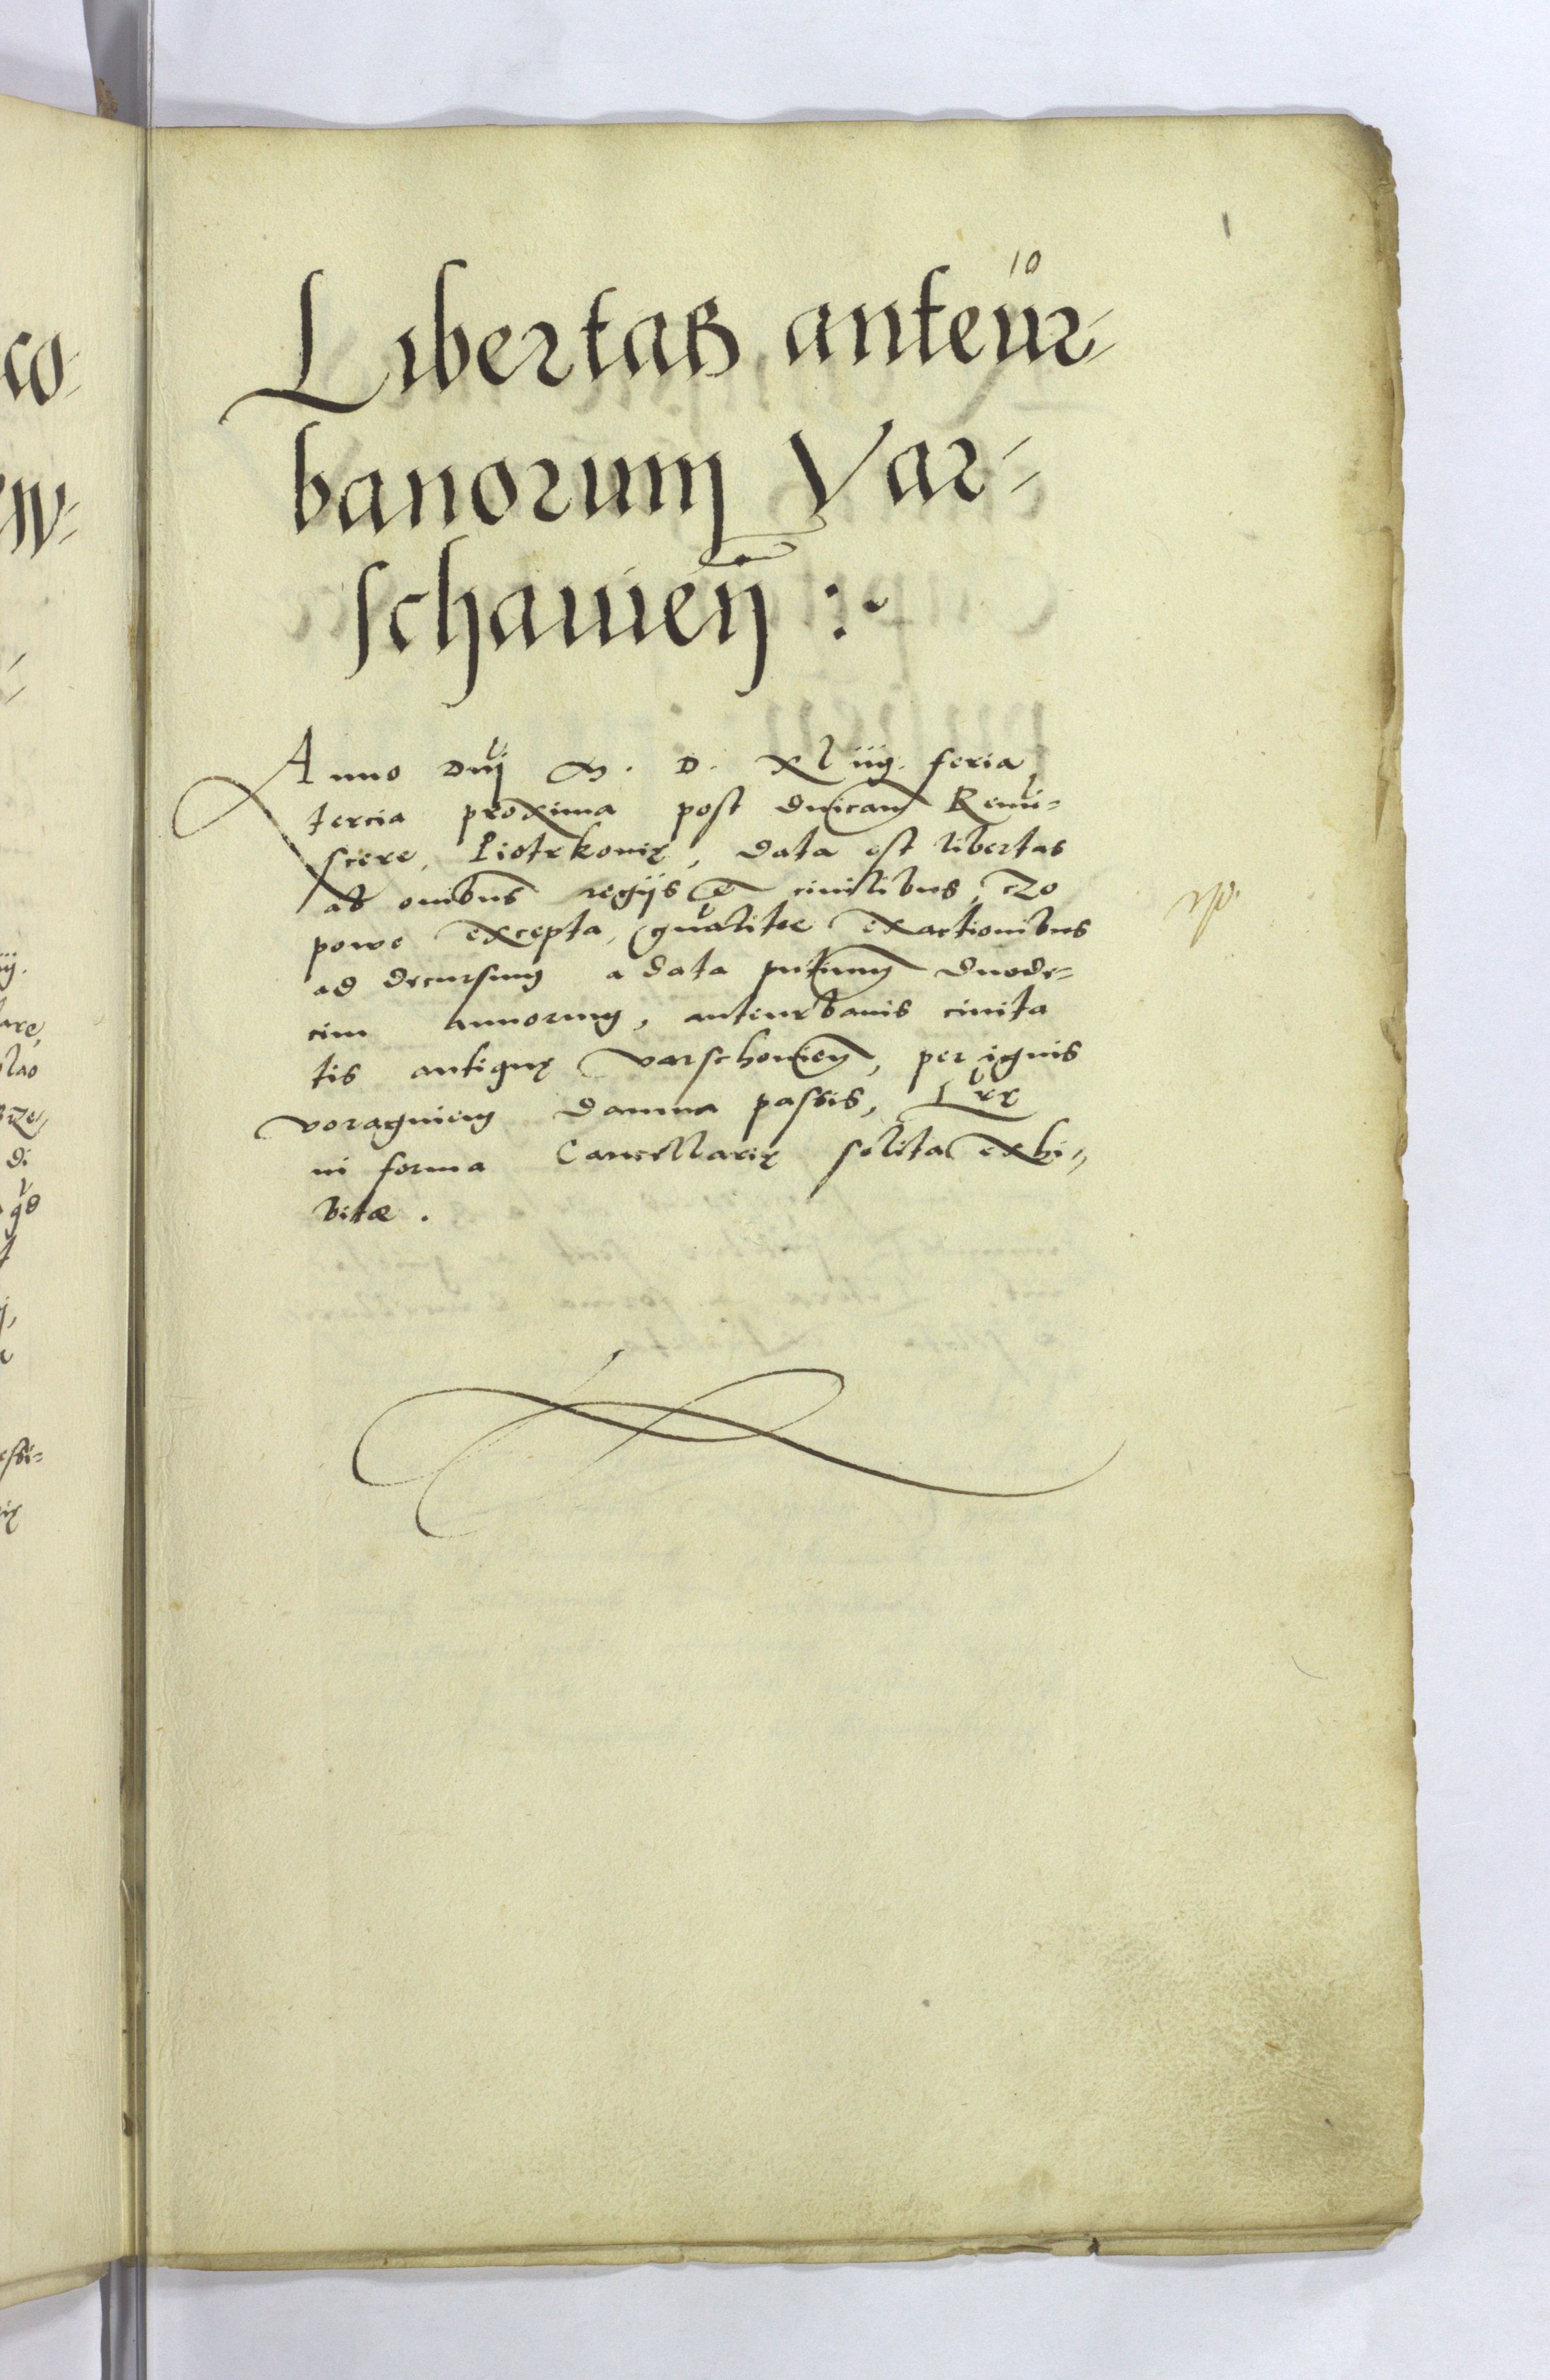 10
Libertas anteur-
banorum Var-
schauień :~
Anno Dnj M. D. xliiij. feria
tercia proxima post dnicam Remi-
scere, Piotrkouię, data est libertas
ab omibus regijs et ciuilibus, czo
powe excepta, qualitee exactionibus
ad decursum a data pntium duode-
cim annorum, anteurbanis ciuita
tis antiquę Varschouień, per ignis
voraginem damna passis, Lrę
in forma Cancellarię solita exhi-
bitæ.